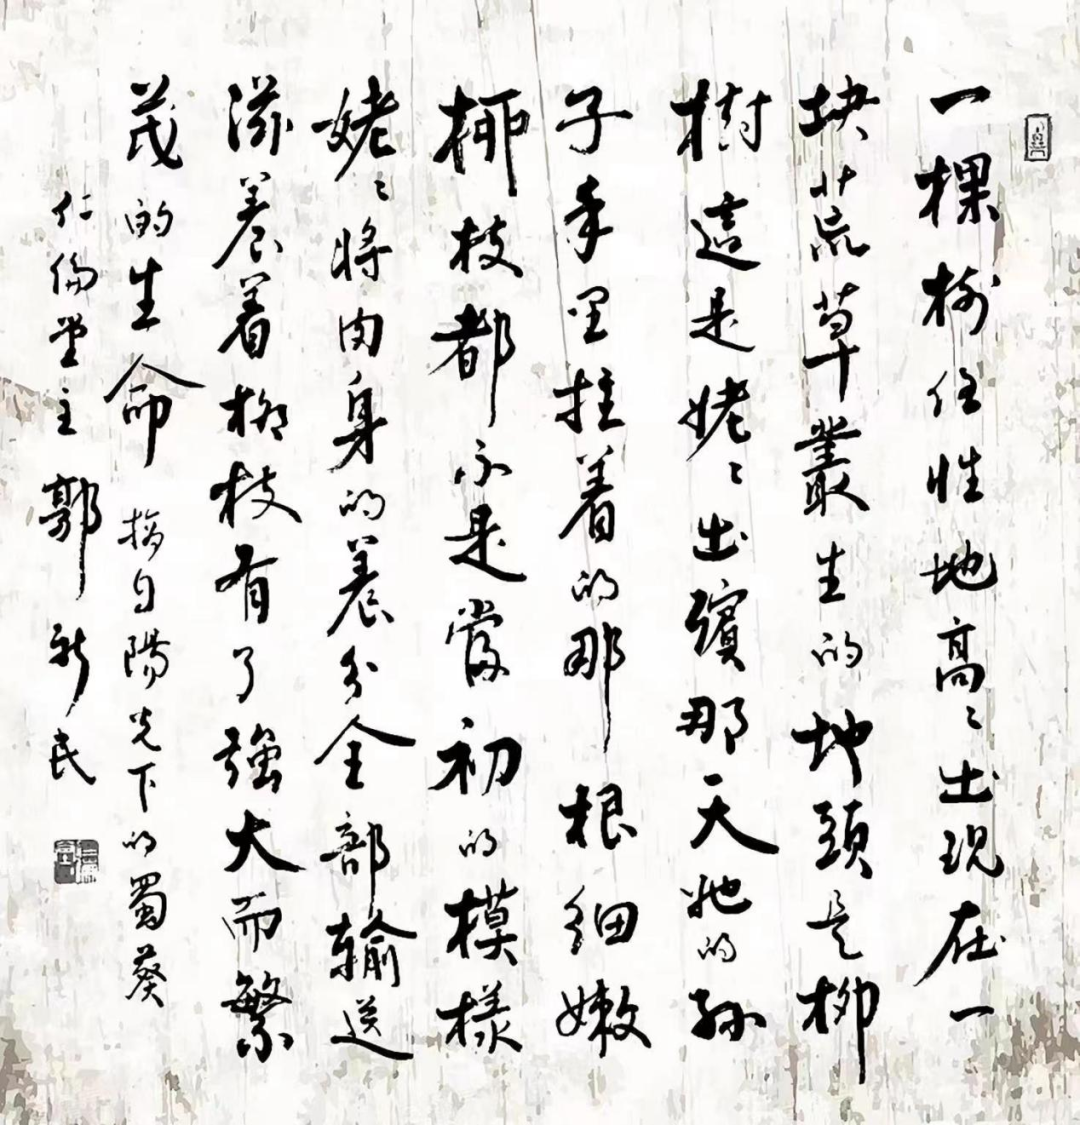 一棵树任性地高高出现在一
块荒草叢生的地頭是柳
樹這是姥姥出殯那天她的孙
子手里拄着的那根细嫩
柳枝都不是當初的模樣
姥姥將肉身的養分全部輸送
滋養着柳枝有了強大而繁
茂的生命 摘自陽光下的蜀葵
仁偏堂主郭新民